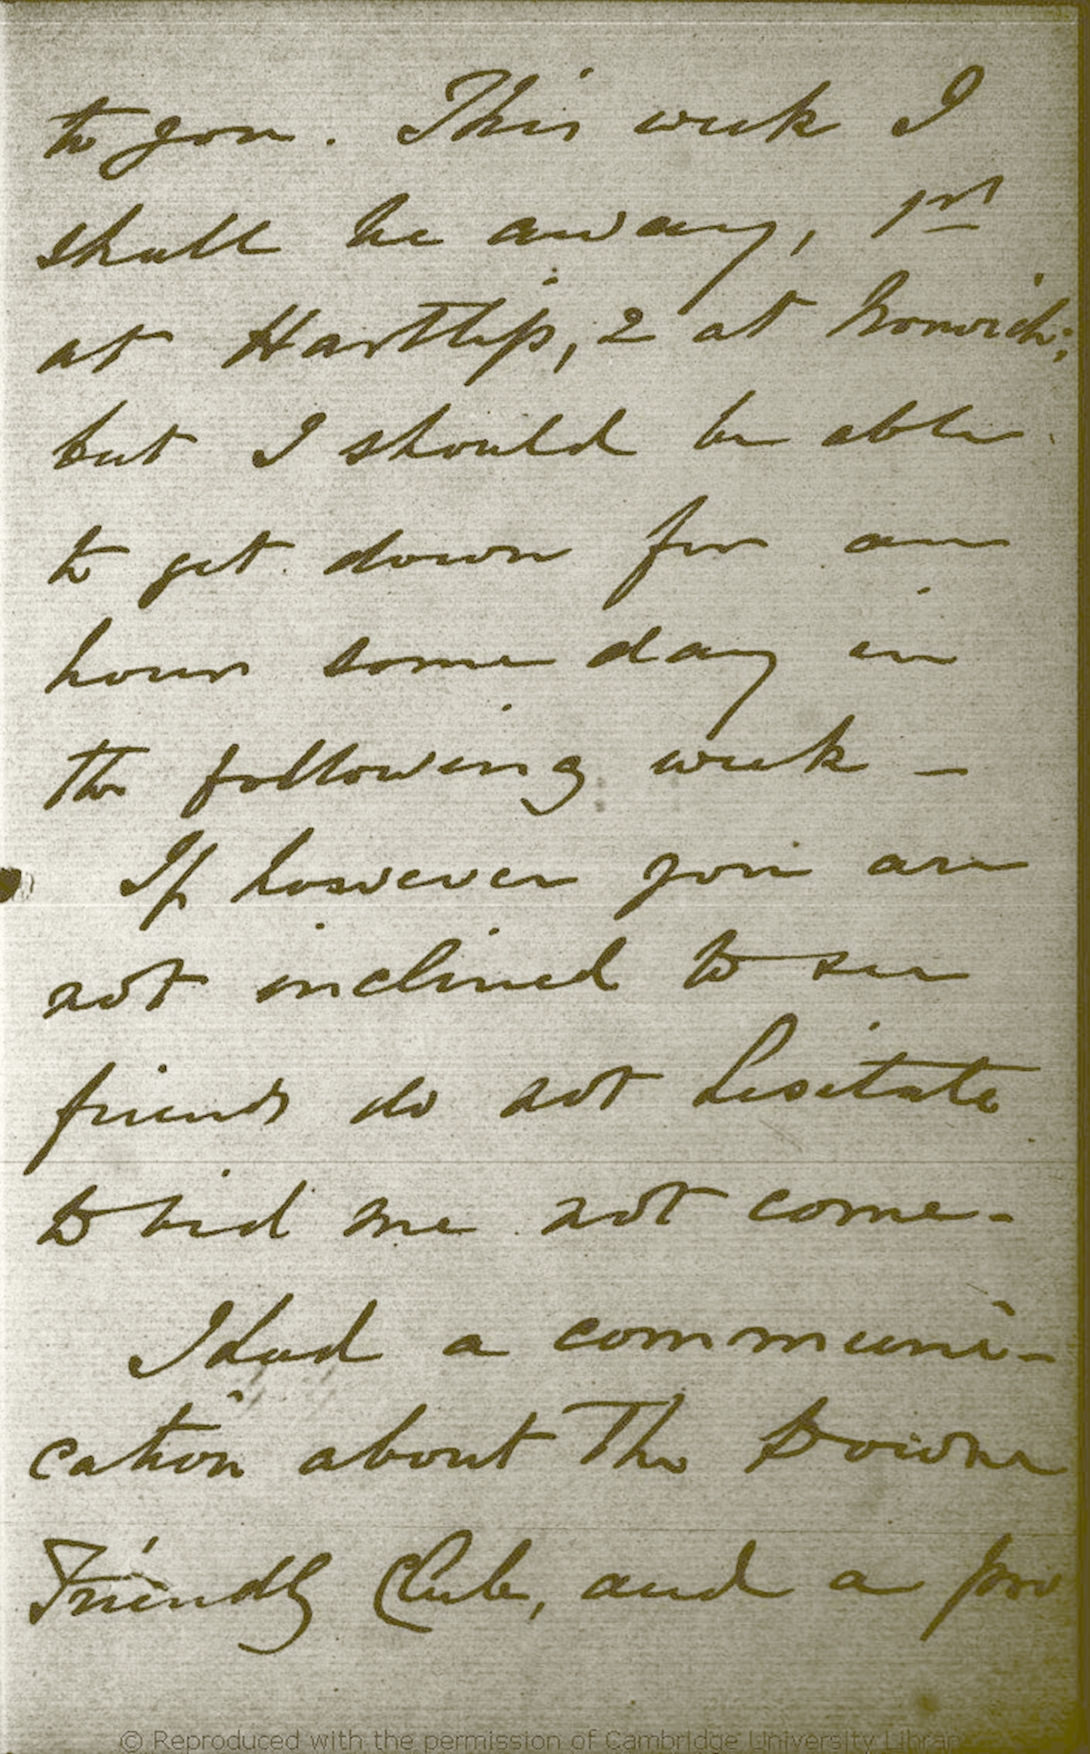 to you. This week I
shall be away, 1st
at Hartlip, 2 at Norwich;
but I should be able
to get down for an
hour some day in
the following week –
If however you are
not inclined to see
friends do not hesitate
to bid me not come –
I had a communi-
cation about The Downe
Friendly Club, and a pro
© Reproduced with the permission of Cambridge University Library